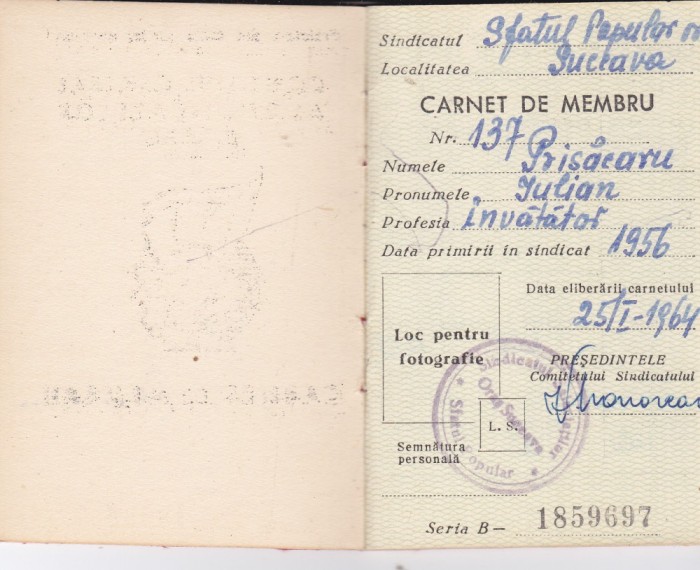 Sindicatul Sfatul Popular or
Localitatea Suceava
CARNET DE MEMBRU
Nr. 137
Numele Prisăcaru
Pronumele Iulian
Profesia Învătător
Data primirii în sindicat 1956
Data eliberării carnetului
25/I-1964
Loc pentru
fotografie
PREȘEDINTELE
Comitetului Sindicatului
L. S.
Semnătura
personală
Sindicatul
Oraș Suceava
Sfatul Popular
Seria B — 1859697